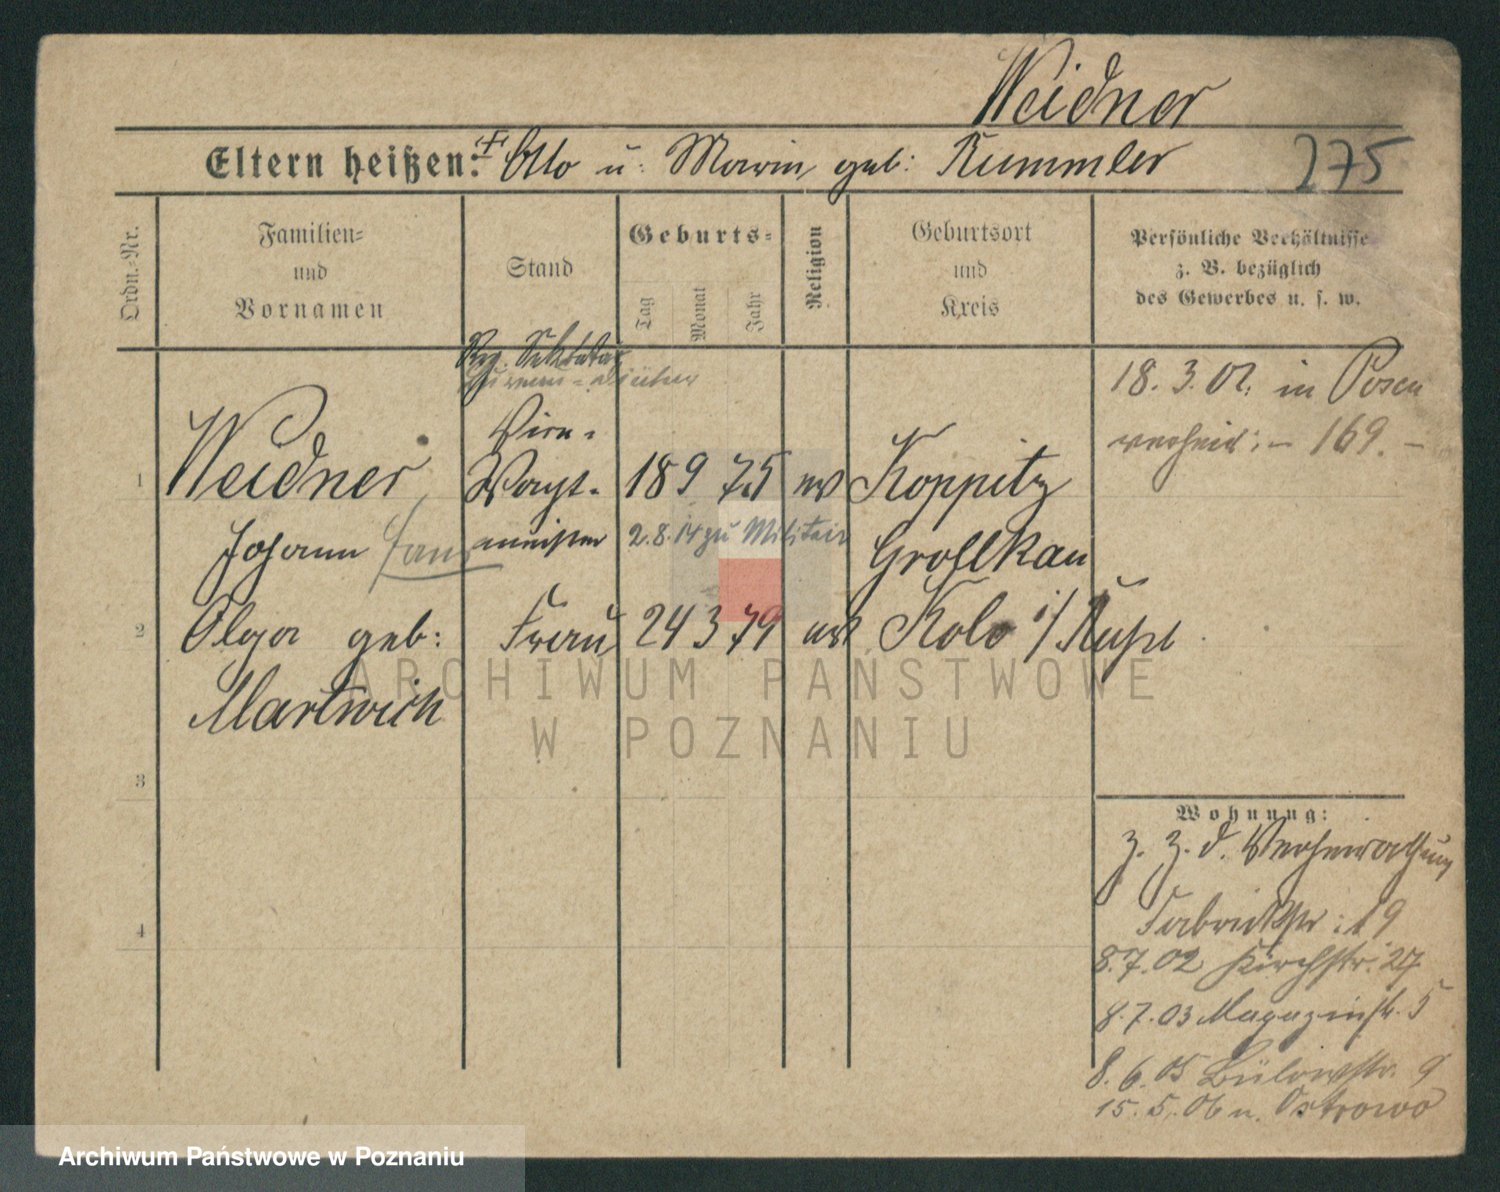 Weidner
Eltern heißen: Otto u: Marin geb: Kummler
275
Ordn.-Nr.
Familien-
und
Vornamen
Stand
Geburts-
Tag
Monat
Jahr
Religion
Geburtsort
und
Kreis
Persönliche Verhältnisse
z. B. bezüglich
des Gewerbes u. s. w.
Reg. Sekretär
18. 3. 02. in Posen
verheir: – 169. –
1
Weidner
Johann
18 9 75
Koppitz
Grottkau
2.8.14 zu Militair
2
Olga geb:
Martwich
Frau
24 3 79
Kolo i/Rußl
3
4
Wohnung:
z. Z. d. Verheirathung
Fabrikstr: 19
8.7.02 Kirchstr. 27
8.7.03 Magazinstr. 5
8.6.05 Bülowstr. 9
15.5.06 n. Ostrowo
ARCHIWUM PAŃSTWOWE
W POZNANIU
Archiwum Państwowe w Poznaniu